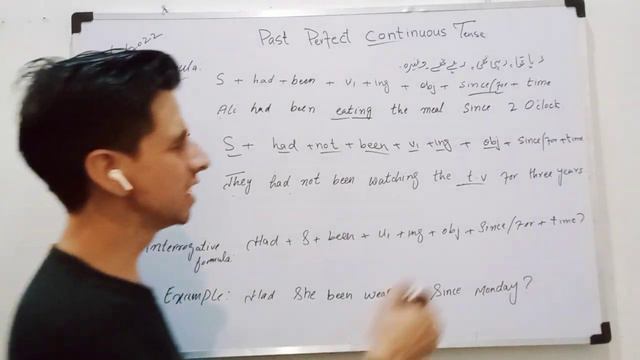 2022
Past Perfect Continuous Tense
رہا تھا، رہی تھی، رہے تھے وغیرہ۔
S + had + been + v1 + ing + obj + since/for + time
Ali had been eating the meal since 2 O'clock
S + had + not + been + v1 + ing + obj + since/for + time
They had not been watching the t.v for three years
Interrogative formula: Had + S + been + v1 + ing + obj + since/for + time?
Example: Had She been since Monday?